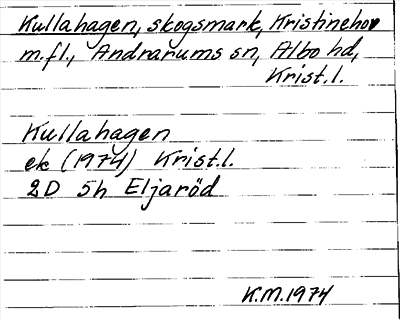 Kullahagen, skogsmark, Kristinehov
m.fl., Andrarums sn, Albo hd,
Krist.l.
Kullahagen
ek (1974) Krist.l.
2D 5h Eljaröd
K.M.1974